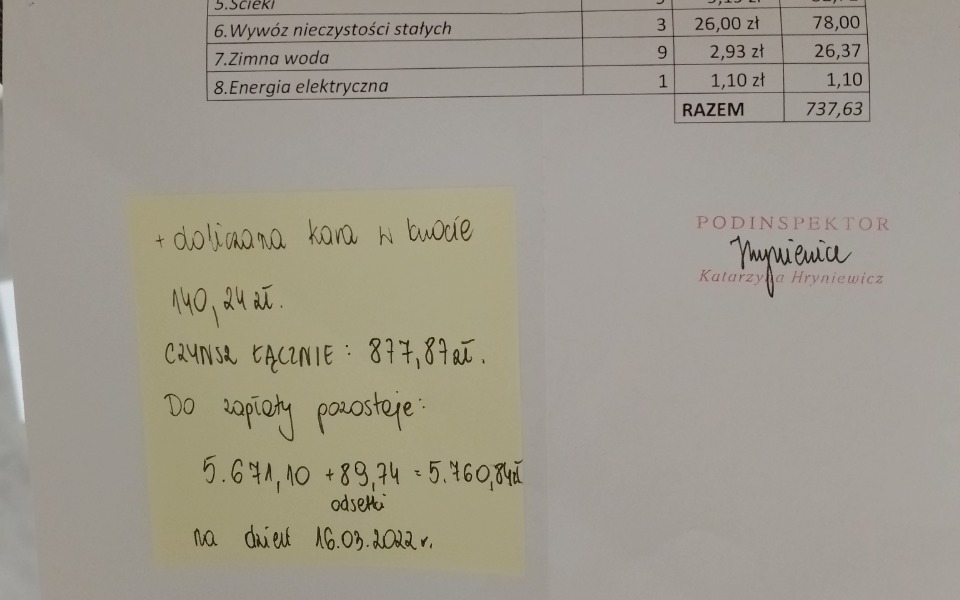 5.Ścieki
6.Wywóz nieczystości stałych 3 26,00 zł 78,00
7.Zimna woda 9 2,93 zł 26,37
8.Energia elektryczna 1 1,10 zł 1,10
RAZEM 737,63
+ doliczana kara w kwocie
140,24 zł.
CZYNSZ ŁĄCZNIE: 877,87 zł.
Do zapłaty pozostaje:
5.671,10 + 89,74 = 5.760,84 zł
odsetki
na dzień 16.03.2022 r.
PODINSPEKTOR
Hryniewicz
Katarzyna Hryniewicz